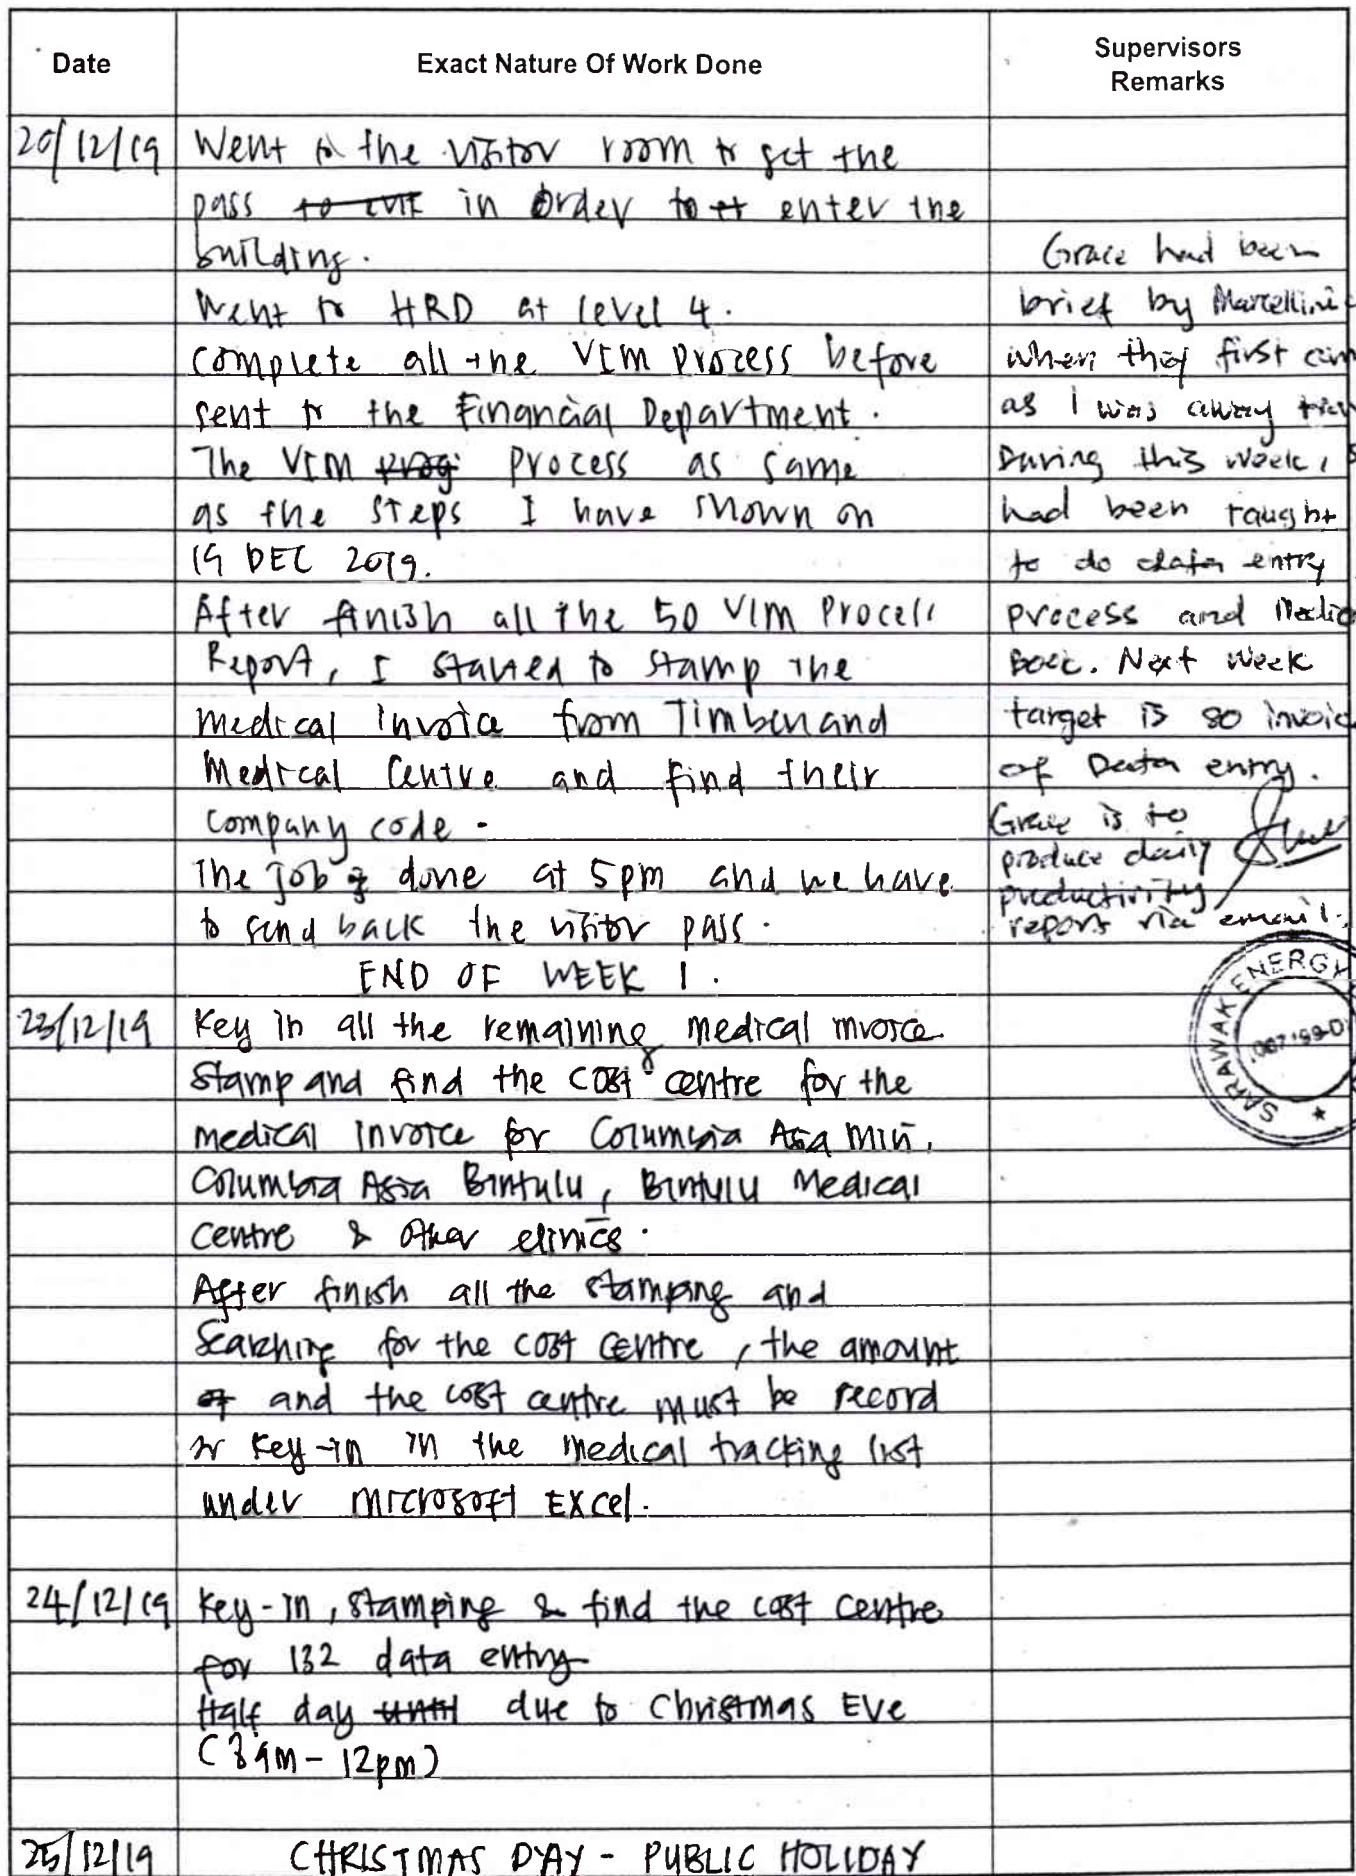 Date
Exact Nature Of Work Done
Supervisors
Remarks
20/12/19
Went to the visitor room to get the
pass in order to enter the
building.
Went to HRD at level 4.
Complete all the VIM Process before
sent to the Financial Department.
The VIM Process as same
as the steps I have shown on
19 DEC 2019.
After finish all the 50 VIM Process
Report, I started to stamp the
medical invoice from Timberland
Medical Centre and find their
company code.
The job done at 5pm and we have
to send back the visitor pass.
END OF WEEK 1.
Grace had been
brief by
when they first
as I was away
During this week,
had been taught
to do data entry
process and
Next week
target is 80
of Data entry.
Grace is to
produce daily
productivity
report via email.
SARAWAK ENERGY
23/12/19
Key in all the remaining medical invoice
Stamp and find the cost centre for the
medical invoice for Columbia Asia Miri,
Columbia Asia Bintulu, Bintulu Medical
Centre & other clinics.
After finish all the stamping and
Searching for the cost centre, the amount
and the cost centre must be record
or key-in in the medical tracking list
under microsoft Excel.
24/12/19
Key-in, stamping & find the cost centre
for 132 data entry
Half day due to Christmas Eve
(8am - 12pm)
25/12/19
CHRISTMAS DAY - PUBLIC HOLIDAY